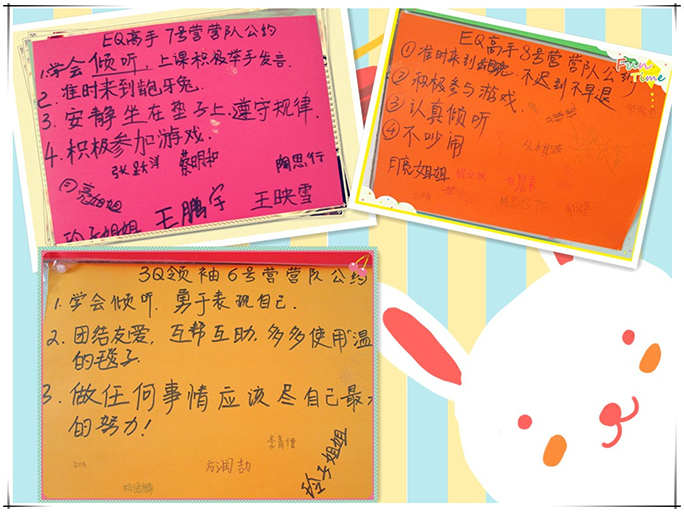 EQ高手 7号营营队公约
1.学会倾听,上课积极举手发言.
2.准时来到龅牙兔.
3.安静坐在垫子上.遵守规律.
4.积极参加游戏.
张跃洋 蔡明和 陶思行
月亮姐姐 王鹏宇 王映雪
玲子姐姐
EQ高手8号营营队公约
①准时来到龅牙兔.不迟到不早退
②积极参与游戏.
③认真倾听
④不吵闹
月亮姐姐
Fun
Time
3Q领袖6号营营队公约
1.学会倾听.勇于表现自己.
2.团结友爱,互帮互助.多多使用"温
的毯子.
3.做任何事情应该尽自己最大
的努力!
玲子姐姐